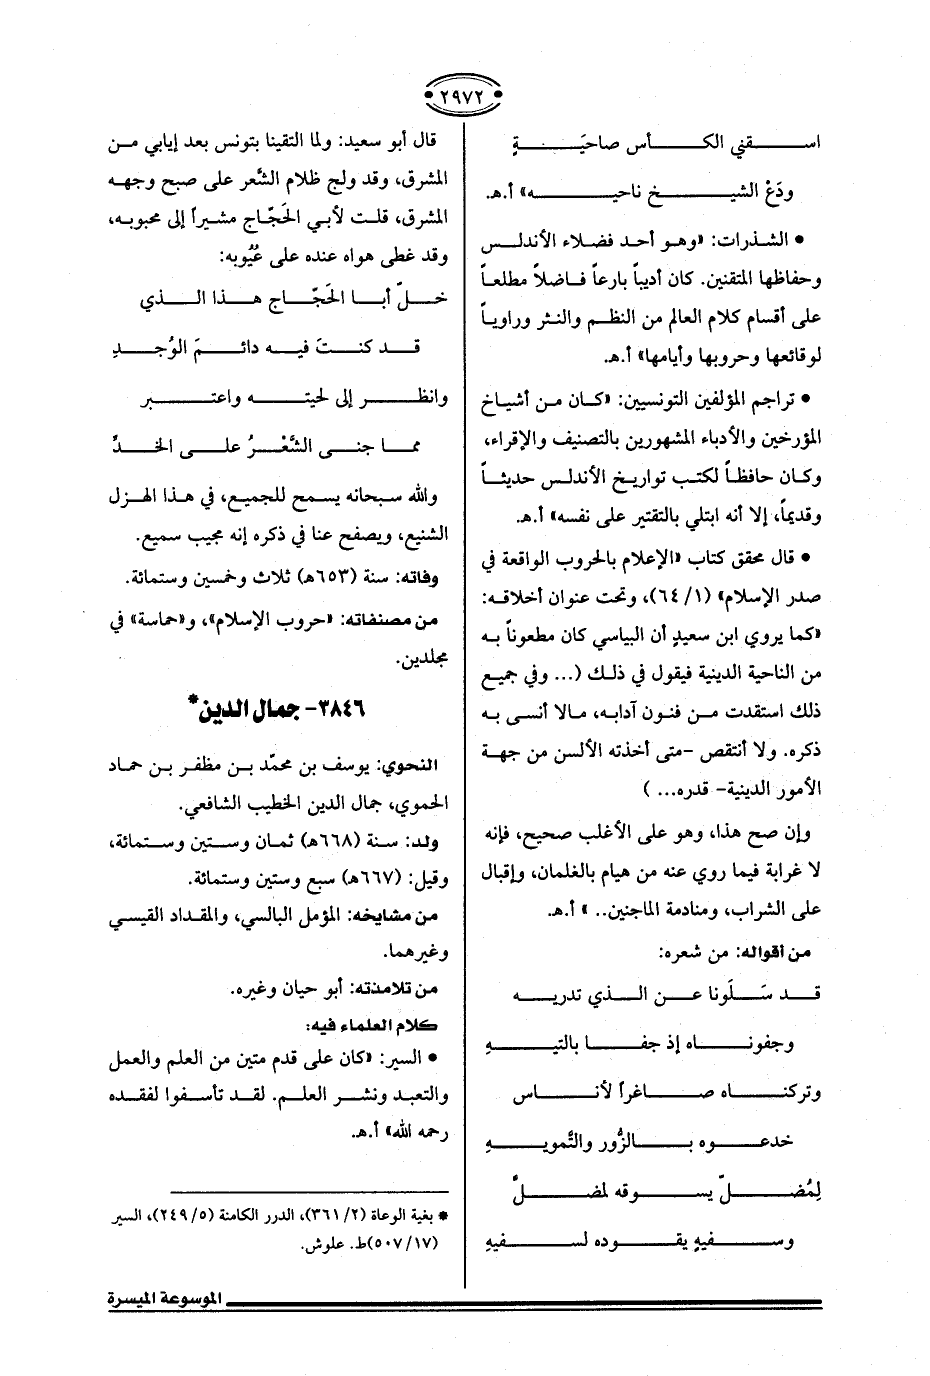 ٢٩٧٢
اسقني الكأس صاحيَةٍ
ودَعْ الشيخ ناحيه» أ.هـ.
• الشذرات: «وهو أحد فضلاء الأندلس
وحفاظها المتقنين. كان أديباً بارعاً فاضلاً مطلعاً
على أقسام كلام العالم من النظم والنثر وراوياً
لوقائعها وحروبها وأيامها» أ.هـ.
• تراجم المؤلفين التونسيين: «كان من أشياخ
المؤرخين والأدباء المشهورين بالتصنيف والإقراء،
وكان حافظاً لكتب تواريخ الأندلس حديثاً
وقديماً، إلا أنه ابتلي بالتقتير على نفسه» أ.هـ.
• قال محقق كتاب «الإعلام بالحروب الواقعة في
صدر الإسلام» (١/ ٦٤)، وتحت عنوان أخلاقه:
«كما يروي ابن سعيدٍ أن البياسي كان مطعوناً به
من الناحية الدينية فيقول في ذلك (... وفي جميع
ذلك استقدت من فنون آدابه، مالا أنسى به
ذكره. ولا أنتقص -متى أخذته الألسن من جهة
الأمور الدينية- قدره... )
وإن صح هذا، وهو على الأغلب صحيح، فإنه
لا غرابة فيما روي عنه من هيام بالغلمان، وإقبال
على الشراب، ومنادمة الماجنين.. » أ.هـ.
من أقواله: من شعره:
قد سَلَونا عن الذي تدريه
وجفوناه إذ جفا بالتيهِ
وتركناه صاغراً لأناس
خدعوه بالزُّور والتَّمويهِ
لِمُضلّ يسوقه لمضلٍّ
وسفيهٍ يقوده لسفيهِ
قال أبو سعيد: ولما التقينا بتونس بعد إيابي من
المشرق، وقد ولج ظلام الشَّعر على صبح وجهه
المشرق، قلت لأبي الحَجّاج مشيراً إلى محبوبه،
وقد غطى هواه عنده على عُيُوبه:
خلّ أبا الحَجّاج هذا الذي
قد كنتَ فيه دائمَ الوُجدِ
وانظر إلى لحيته واعتبر
مما جنى الشَّعْرُ على الخدِّ
والله سبحانه يسمح للجميع، في هذا الهزل
الشنيع، ويصفح عنا في ذكره إنه مجيب سميع.
وفاته: سنة (٦٥٣هـ) ثلاث وخمسين وستمائة.
من مصنفاته: «حروب الإسلام»، و«حماسة» في
مجلدين.
٣٨٤٦- جمال الدين*
النحوي: يوسف بن محمّد بن مظفر بن حماد
الحموي، جمال الدين الخطيب الشافعي.
ولد: سنة (٦٦٨هـ) ثمان وستين وستمائة،
وقيل: (٦٦٧هـ) سبع وستين وستمائة.
من مشايخه: المؤمل البالسي، والمقداد القيسي
وغيرهما.
من تلامذته: أبو حيان وغيره.
كلام العلماء فيه:
• السير: «كان على قدم متين من العلم والعمل
والتعبد ونشر العلم. لقد تأسفوا لفقده
رحمه الله» أ.هـ.
* بغية الوعاة (٢/ ٣٦١)، الدرر الكامنة (٥/ ٢٤٩)، السير
(١٧/ ٥٠٧)ط. علوش.
الموسوعة الميسرة